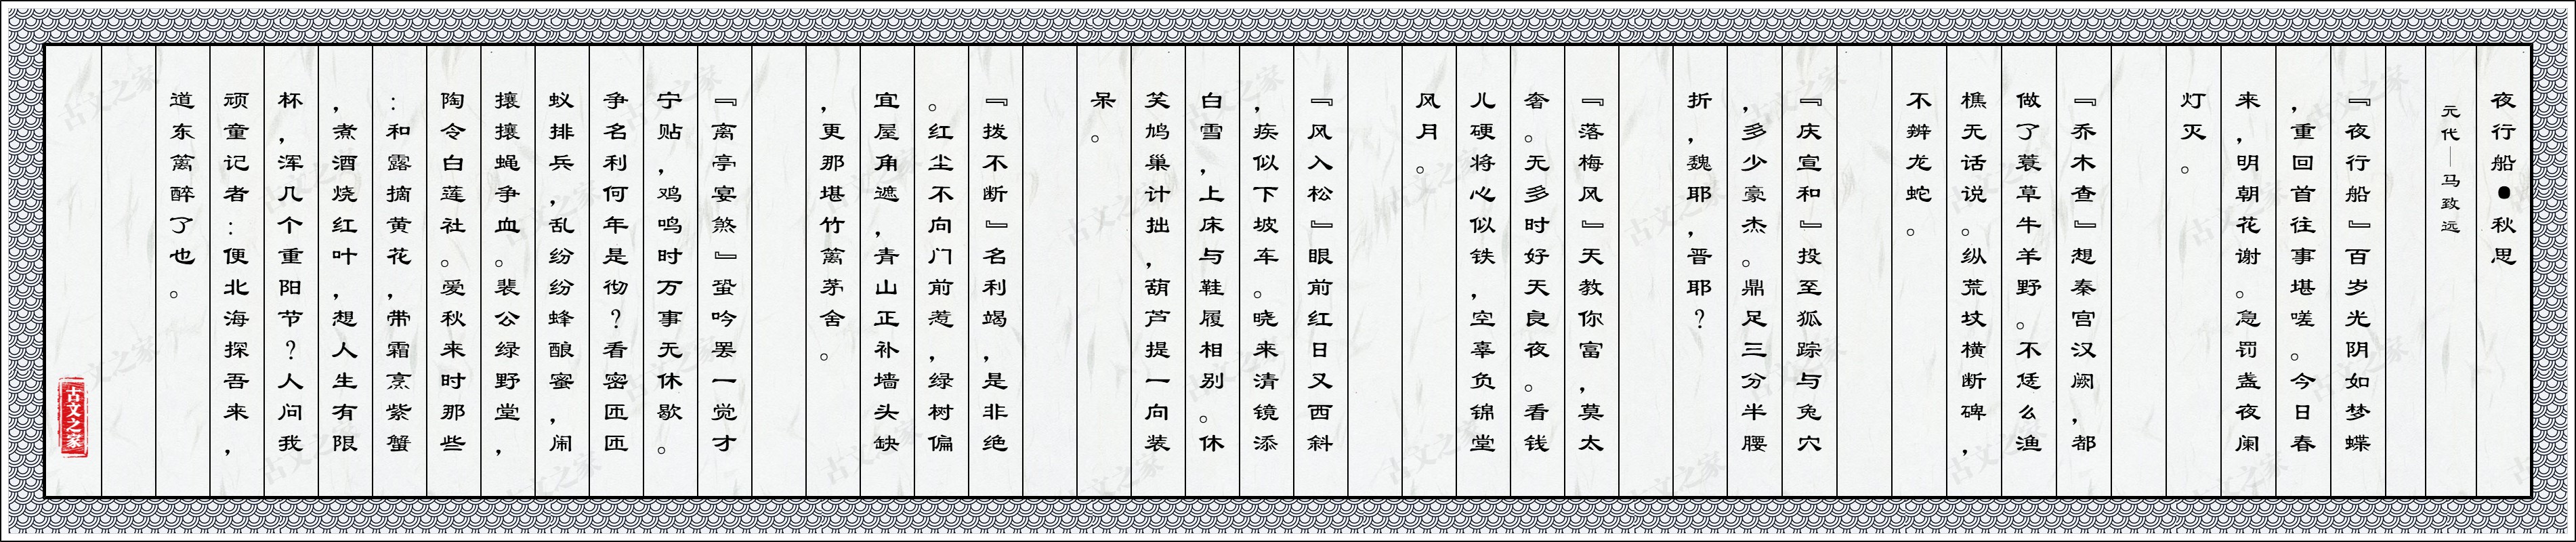 夜行船●秋思
元代—马致远
『夜行船』百岁光阴如梦蝶
，重回首往事堪嗟。今日春
来，明朝花谢。急罚盏夜阑
灯灭。
『乔木查』想秦宫汉阙，都
做了蓑草牛羊野。不恁么渔
樵无话说。纵荒坟横断碑，
不辨龙蛇。
『庆宣和』投至狐踪与兔穴
，多少豪杰。鼎足三分半腰
折，魏耶，晋耶？
『落梅风』天教你富，莫太
奢。无多时好天良夜。看钱
儿硬将心似铁，空辜负锦堂
风月。
『风入松』眼前红日又西斜
，疾似下坡车。晓来清镜添
白雪，上床与鞋履相别。休
笑鸠巢计拙，葫芦提一向装
呆。
『拨不断』名利竭，是非绝
。红尘不向门前惹，绿树偏
宜屋角遮，青山正补墙头缺
，更那堪竹篱茅舍。
『离亭宴煞』蛩吟罢一觉才
宁贴，鸡鸣时万事无休歇。
争名利何年是彻？看密匝匝
蚁排兵，乱纷纷蜂酿蜜，闹
攘攘蝇争血。裴公绿野堂，
陶令白莲社。爱秋来时那些
：和露摘黄花，带霜烹紫蟹
，煮酒烧红叶，想人生有限
杯，浑几个重阳节？人问我
顽童记者：便北海探吾来，
道东篱醉了也。
古文之家